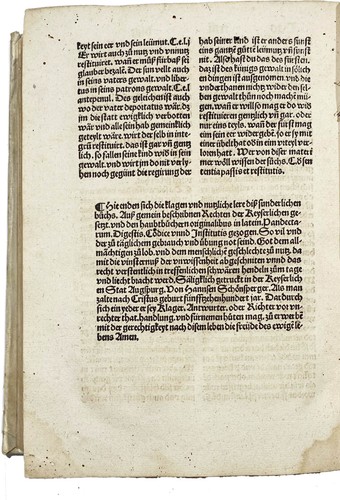 keyt sein eer vnd sein leümut. C.e.l.j
Er wirt auch zů nutz vnd vnnutz
restituiret. wañ er můß für baß sei
glauber bezalẽ. Der sun vellt auch
in seins vaters gewalt. vnd libert
us in seins patrons gewalt. C.e.l
antepenul. Des gelichen ist auch
wo der vater deportatus wär. dz
im die statt ewiglich verbotten
wär vnd alle sein hab gemeinklich
geteylt wäre. wirt der selb in inte
grū restituiret. das ist gar vñ gentz
lich. so fallen seine kind wids in sein
gewalt. vnd wirt jm do nit verlyh
en noch gegünt die regirung der
hab seiner kind ist er anders sunst
eins gantzẽ gůtẽ leümutz vñ sunst
nit. Also hast du das des fürsten.
daz ist des künigs gewalt in sölich
en dingen ist außgenomen. vnd die
vnderthanen nichtz wider den sel
ben gewalt thůn noch machẽ mü
gen. wañ er will so mag er do wis
restituiren genglich vñ gar. oder
nur eins teyls. wañ der fürst mag
ein sein eer widergebẽ. so er sy mit
einer übeltat oß in ein vrteyl ver
lorem hatt. Wer von diser materi
mer wöll wissen der sůchs. C. ö sen
tentia passis et restitutis.
¶ Hie enden sich die klagen vnd nutzliche lere diß sunderlichen
bůchs. Auß gemein beschribnen Rechten der Keyserlichen ge-
setzt. vnd den haubtbüchern originalibus in latein. Pandecta-
rum. Digestis. Codice vnnd Institutis gezogen. So vil vnd
der zů täglichem gebrauch vnd übung not seind. Got dem all-
mächtigen zů lob. vnd dem menschlichẽ geschlechte zů nutz. da
mit die vinsternuß der vnwissenheit abgeschniten vnnd das
recht verstentlich in treffenlichen schwären hendeln zům tage
vnd liecht bracht werd. Säligklich getruckt in der Keyserlich
en Stat Augspurg. Von Hannsen Schönsperger. Als man
zalte nach Cristus geburt fünfftzehenhundert jar. Dardurch
sich ein yeder er sey Klager. Antwurter. oder Richter vor vn-
rechter that. handlung. vnd fürnemen hüten mag. zů erwerbẽ
mit der gerechtigkeyt nach disem leben die freüde des ewigẽ le
bens Amen.